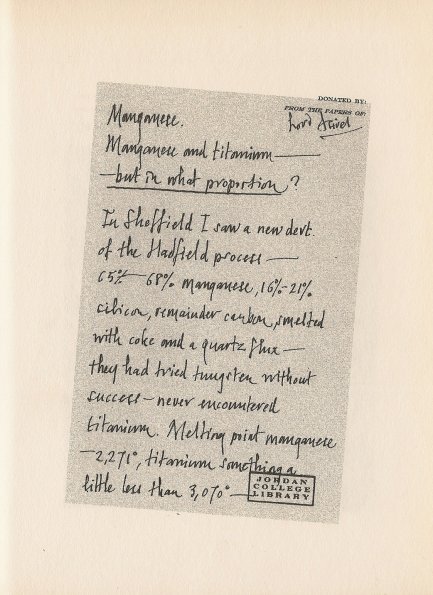 DONATED BY:
FROM THE PAPERS OF:
Lord Asriel
Manganese.
Manganese and titanium —
— but in what proportion?
In Sheffield I saw a new devt.
of the Hadfield process —
65% – 68% manganese, 16% – 21%
silicon, remainder carbon, smelted
with coke and a quartz flux —
they had tried tungsten without
success – never encountered
titanium. Melting point manganese
– 2,271°, titanium something a
little less than 3,070° —
JORDAN
COLLEGE
LIBRARY